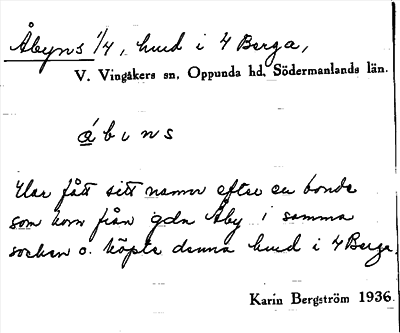 Åbyns 1/4, hmd i 4 Berga,
V. Vingåkers sn, Oppunda hd, Södermanlands län.
á b ı n s
Har fått sitt namn efter en bonde
som kom från gdn Åby i samma
socken o. köpte denna hmd i 4 Berga.
Karin Bergström 1936.